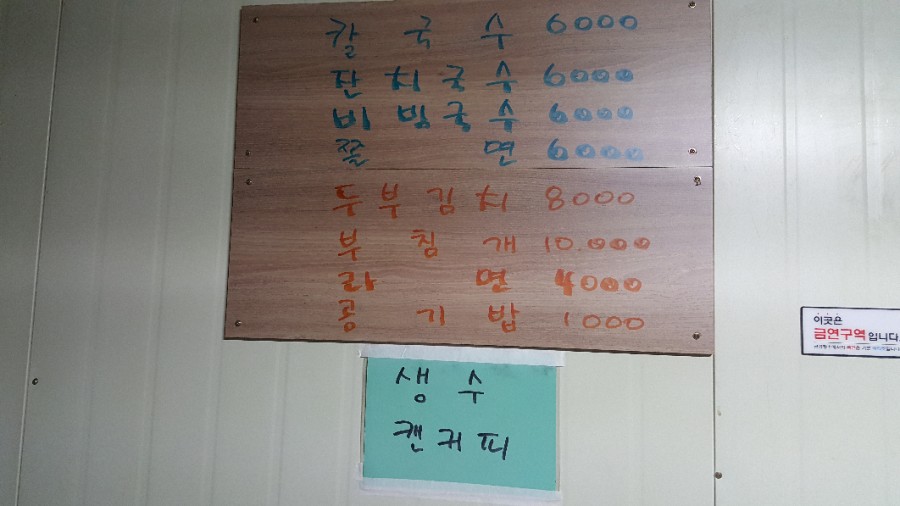 칼국수 6000
잔치국수 6000
비빔국수 6000
쫄면 6000
두부김치 8000
부침개 10.000
라면 4000
공기밥 1000
생수
캔커피
이곳은
금연구역입니다.